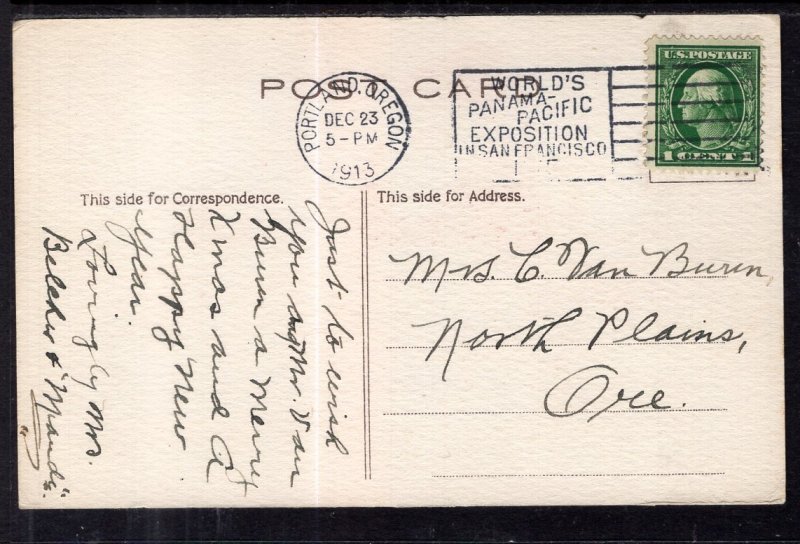 POST CARD
PORTLAND, OREGON
DEC 23
5 - PM
1913
WORLD'S
PANAMA-
PACIFIC
EXPOSITION
IN SAN FRANCISCO
U.S. POSTAGE
1 CENT 1
This side for Correspondence.
This side for Address.
Just to wish
you and Mr. Van
Buren a Merry
Xmas and A
Happy New
Year.
Lovingly Mrs.
Belcher & "Maude".
Mrs. C. Van Buren,
North Plains,
Ore.